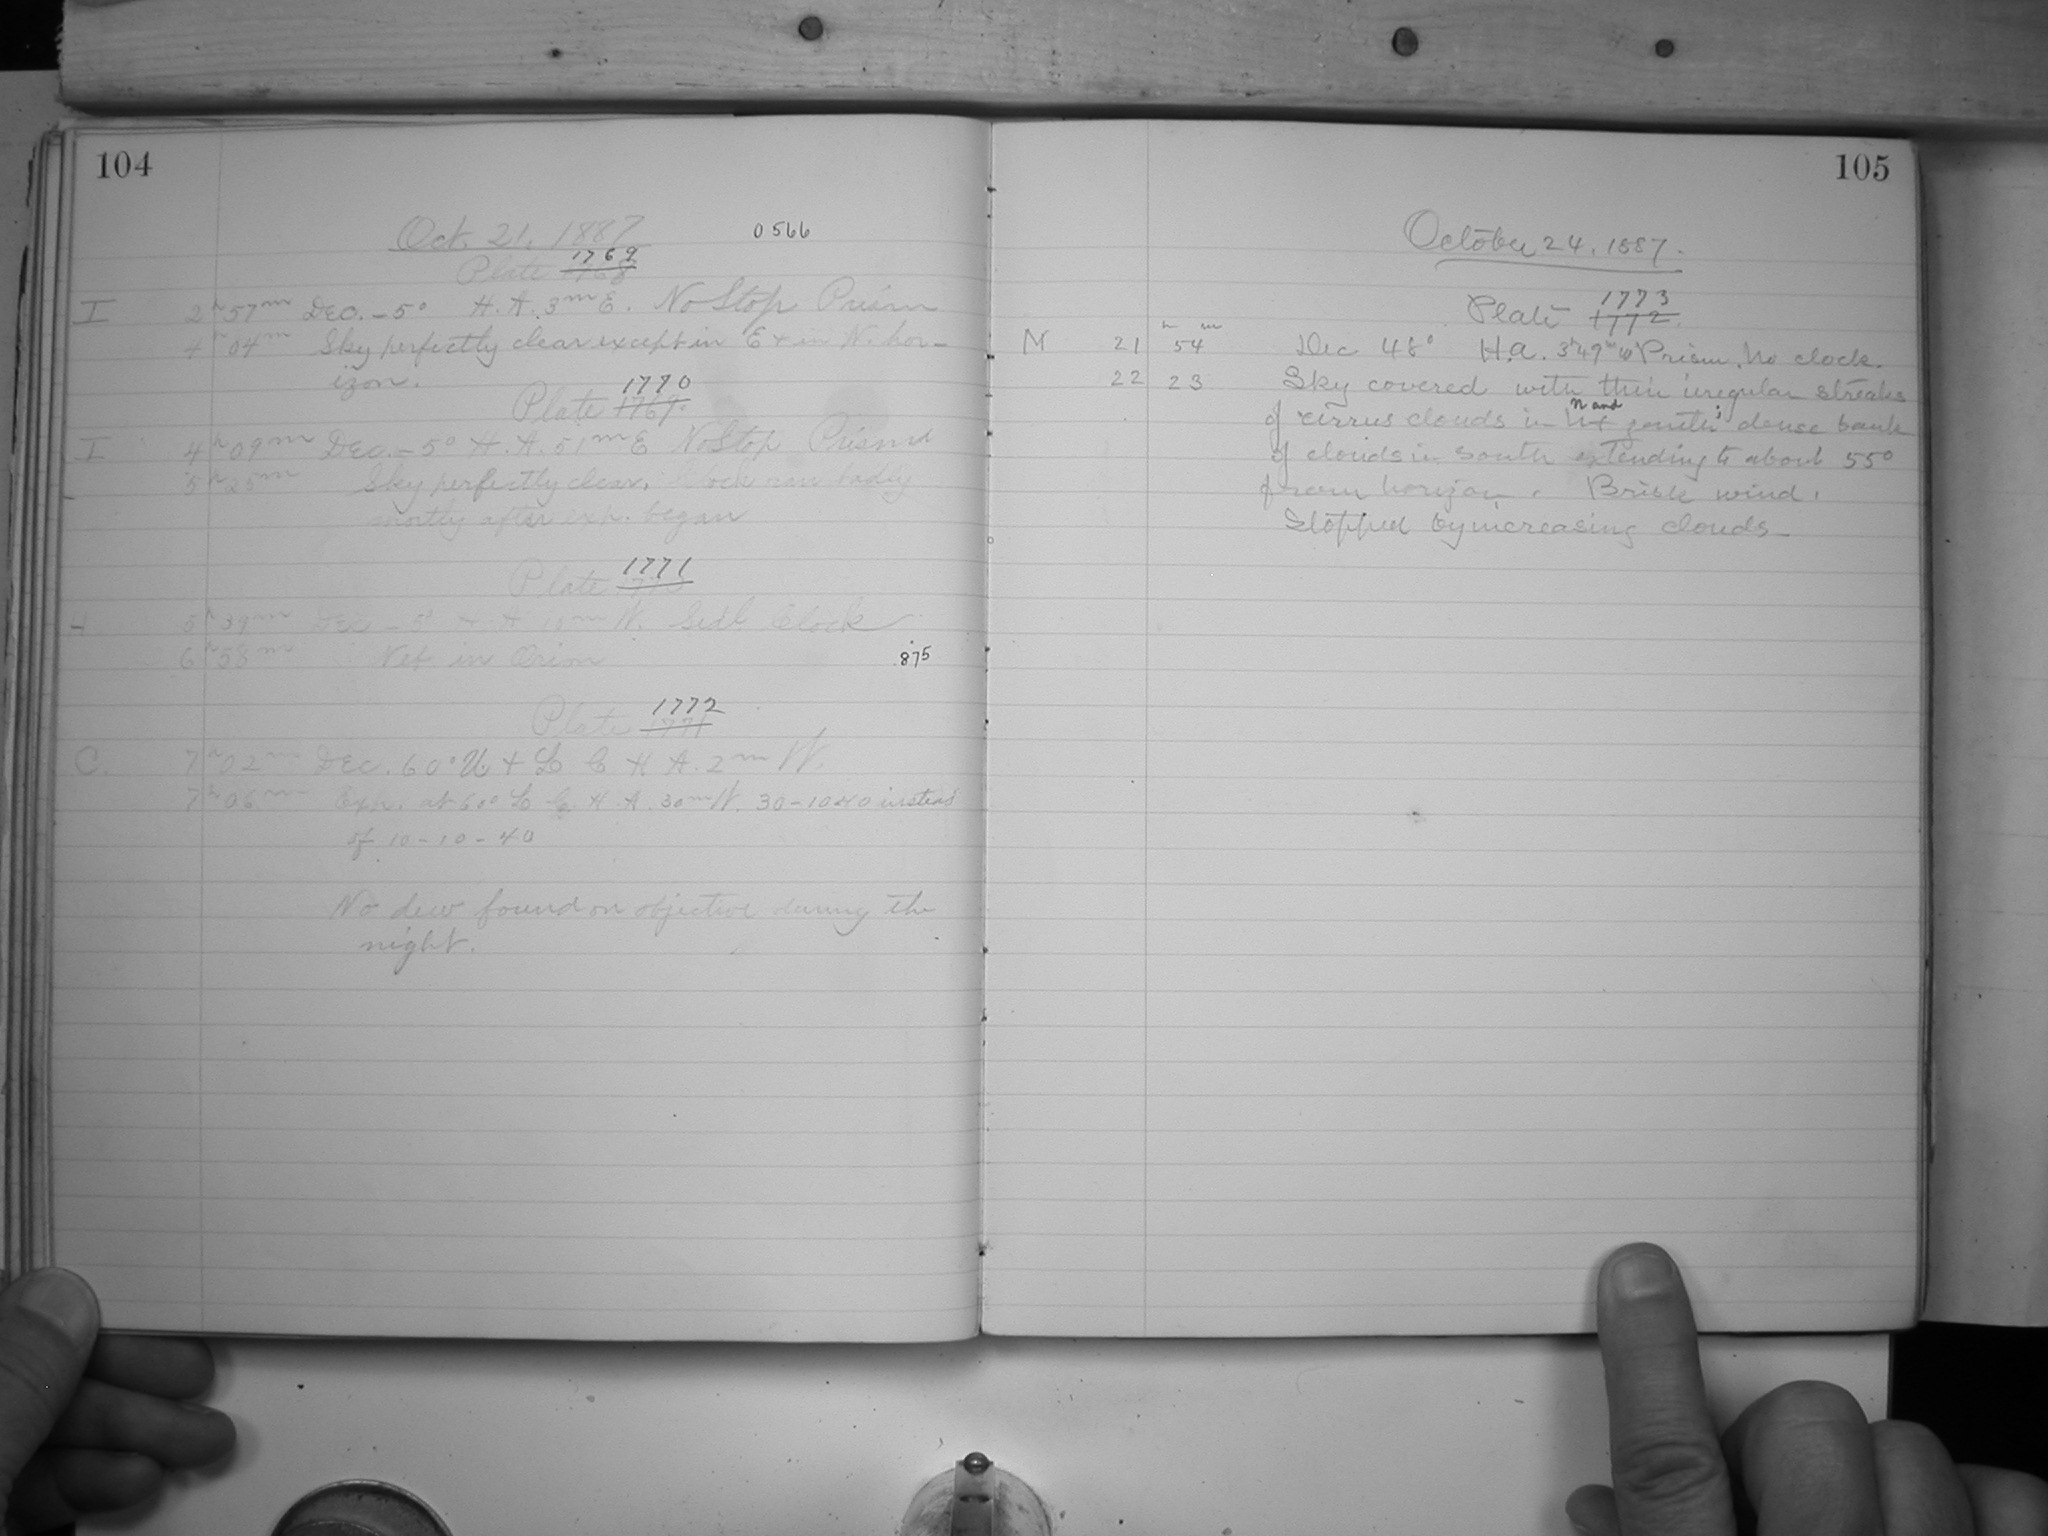 104
Oct. 21, 1887
0566
1769
Plate 1768
I 2h 57m Dec. -5° H.A. 3m E. No Stop Prism
4h 04m Sky perfectly clear except in E + in N. hor-
izon.
1770
Plate 1769
I 4h 09m Dec. -5° H.A. 51m E No Stop Prism
5h 25m Sky perfectly clear, clock ran badly
shortly after exp. began
1771
Plate 1770
I 5h 39m Dec -5° H A m W. Sidl. Clock
6h 58m Neb in Orion
875
1772
Plate 1771
C. 7h 02m Dec. 60° U + L C H A. 2m W.
7h 06m Exp. at 60° L C. H.A. 30m W. 30-10 40 instead
of 10-10-40
No dew found on objective during the
night.
105
October 24, 1887.
1773
Plate 1772
h m
M 21 54 Dec 48° H.A. 3h49m W Prism. No clock.
22 23 Sky covered with thin irregular streaks
of cirrus clouds in N and zenith; dense bank
of clouds in south extending to about 55°
from horizon. Brisk wind.
Stopped by increasing clouds-